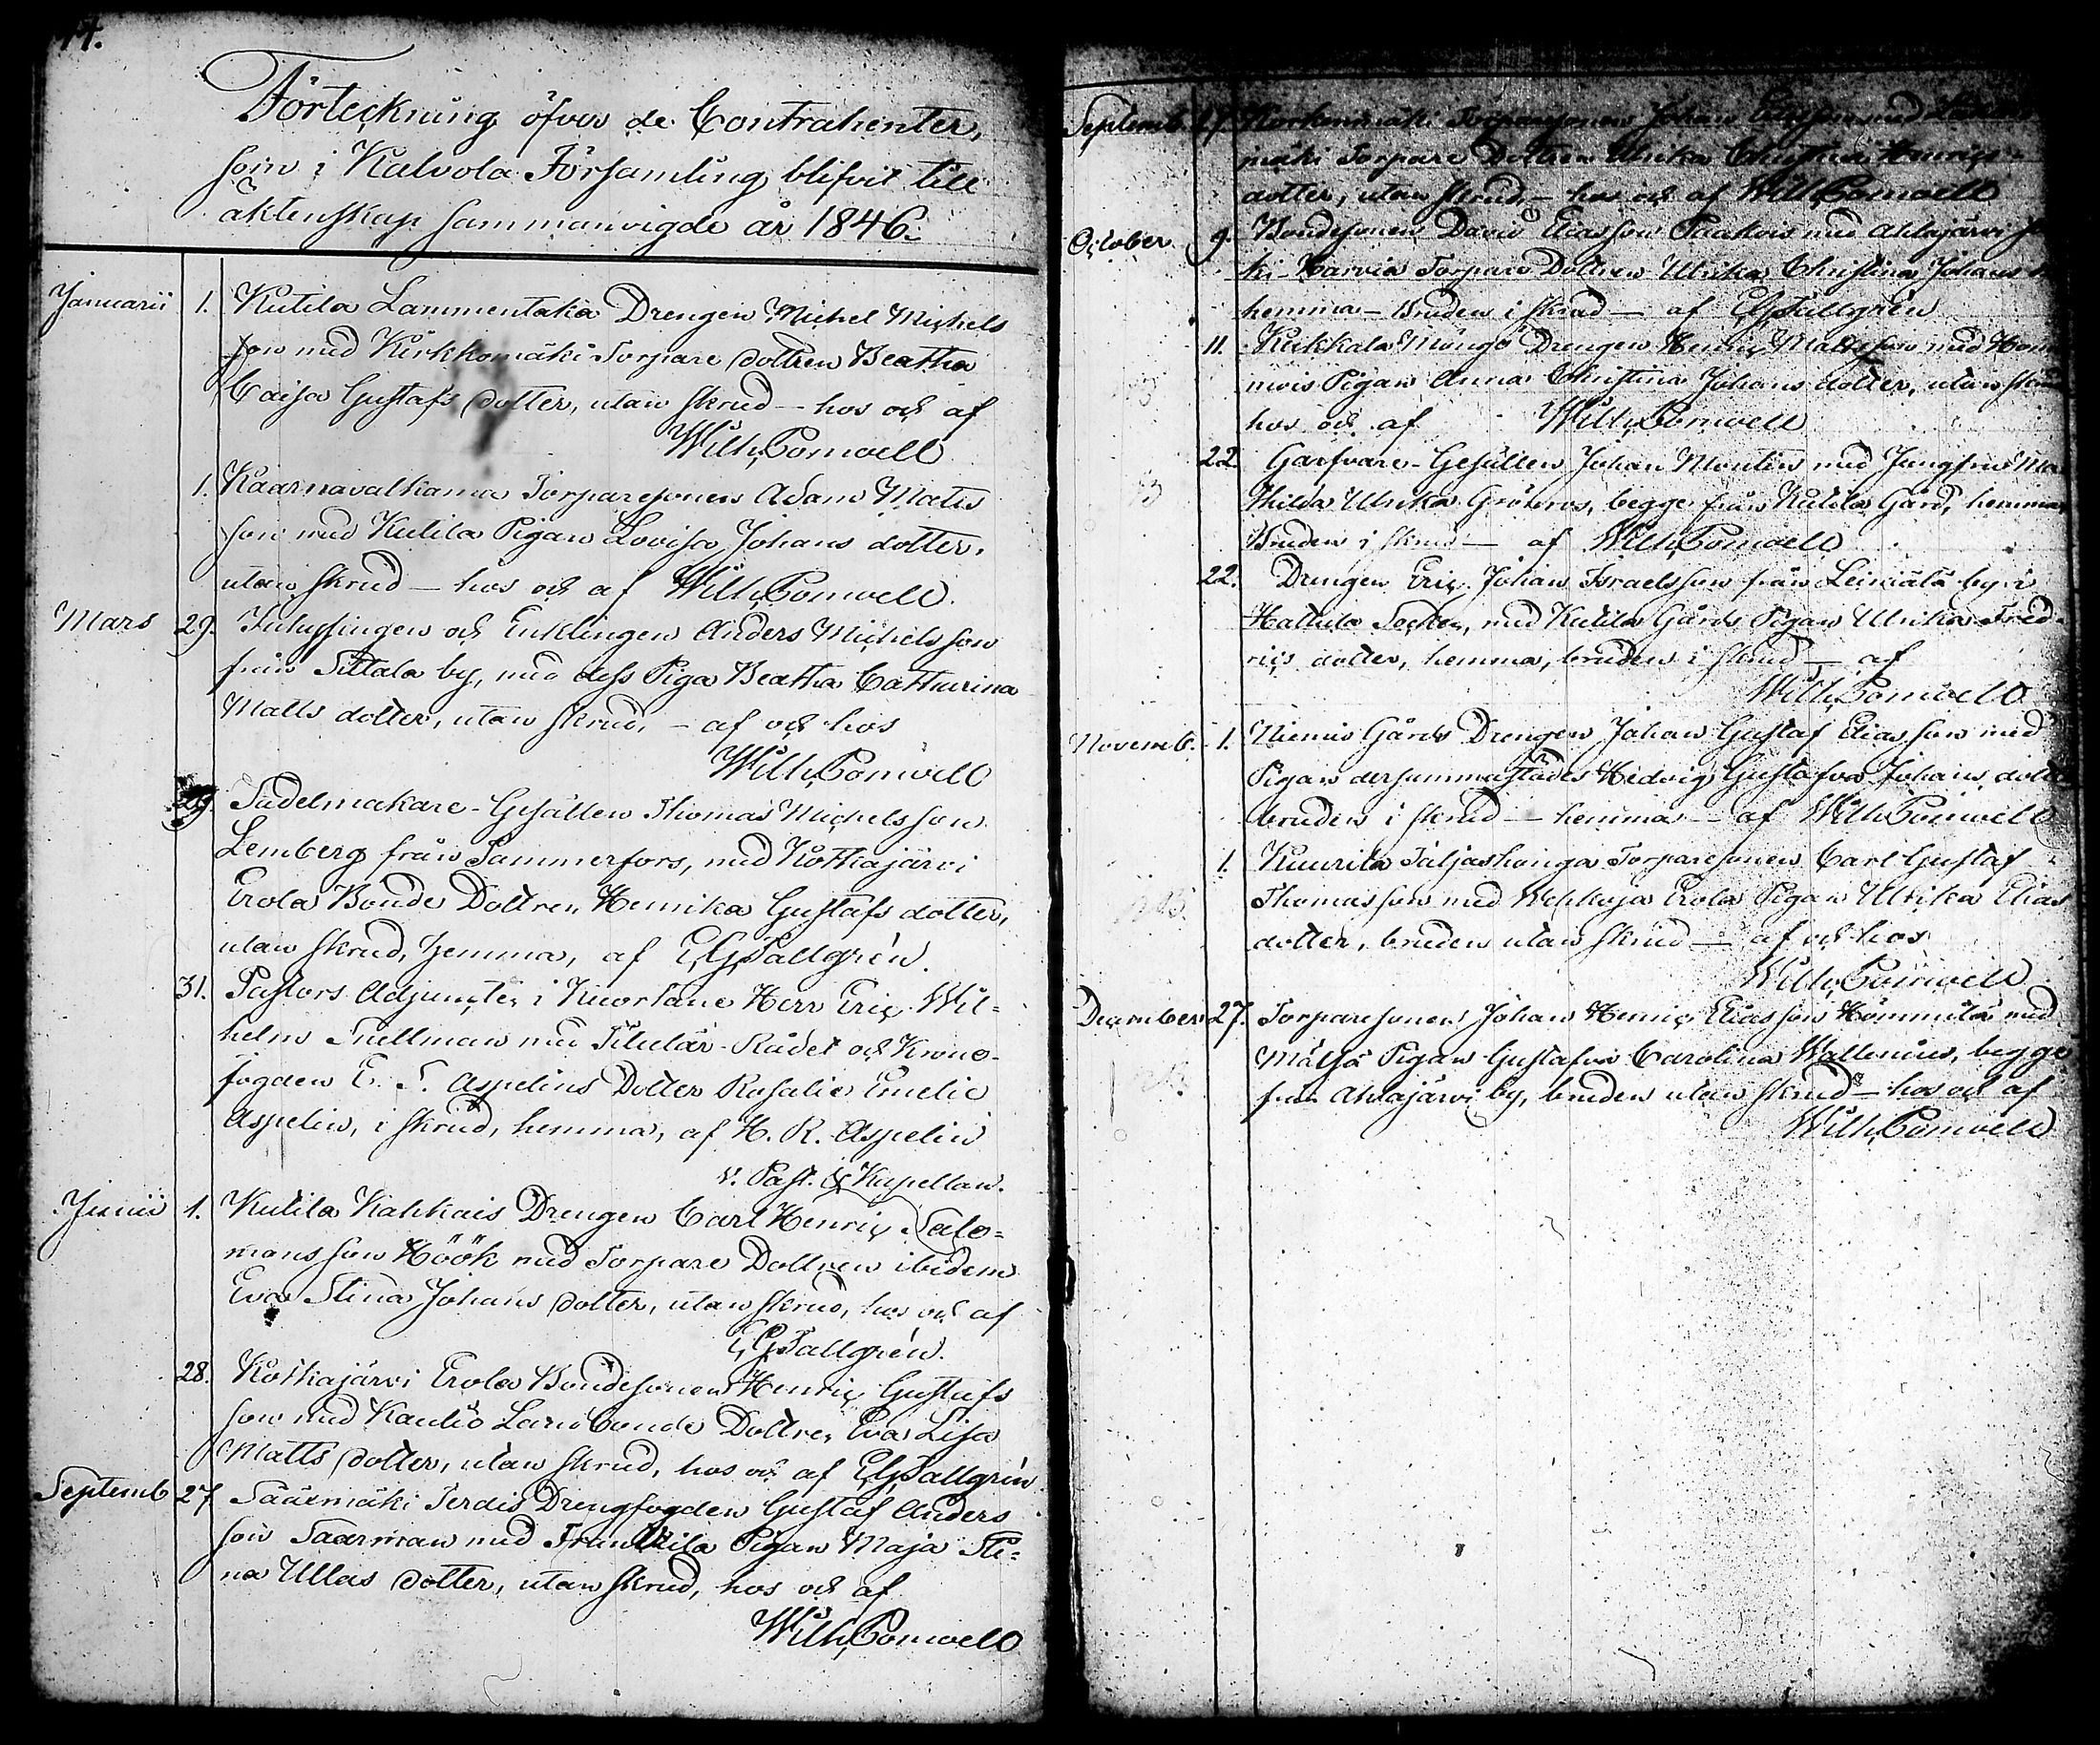 44.
Förteckning öfver de Contrahenter,
som i Kalvola Församling blifvit till
äktenskap sammanvigde år 1846.
Januarii 1. Kutila Lammentaka Drengen Michel Michels
son med Kirkkomäki Torpare dottren Beatha
Caisa Gustafs dotter, utan skrud - hos och af
Wilh. Pomoell
1. Kaarnavalkama Torparesonen Adam Matts
son med Kutila Pigan Lovisa Johans dotter,
utan skrud - hos och af Wilh. Pomoell.
Mars 29. Inhysingen och Enklingen Anders Michelsson
från Sittala by, med dess Piga Beatha Catharina
Matts dotter, utan skrud, - af och hos
Wilh. Pomoell
29. Sadelmakare-Gesällen Thomas Michelsson
Lemberg från Tammerfors, med Kotkajärvi
Erola Bonde Dottren Henrika Gustafs dotter,
utan skrud, hemma, af E. G. Tallgrén.
31. Pastors Adjuncten i Kuortane Herr Eric Wil-
helm Snellman med Titulär-Rådet och Krono-
fogden E. S. Aspelins Dotter Rosalie Emelie
Aspelin, i skrud, hemma, af H. R. Aspelin
v. Past. & Kapellan.
Junii 1. Kutila Kahkais Drengen Carl Henric Salo-
mons son Höök med Torpare Dottren ibidem
Eva Stina Johans dotter, utan skrud, hos och af
E. G. Tallgrén.
28. Kotkajärvi Erola Bondesonen Henric Gustafs
son med Kanliö Landbonde Dottren Eva Lisa
Matts dotter, utan skrud, hos och af E. G. Tallgrén
Septemb 27 Sääxmäki Terdis Drengfogden Gustaf Anders
son Saarman med Pigan Maja Sti-
na Ullas dotter, utan skrud, hos och af
Wilh. Pomoell
Septemb. 27. Torparesonen Johan med
mäki Torpare Dottren Ulrika Christina Henrics
dotter, utan skrud, - hos och af Wilh. Pomoell
October 9. Bondesonen David Eliasson Paakois med Ahlajärvi
ki-Harvia Torpare Dottren Ulrika Christina Johans
hemma - Bruden i skrud - af E. G. Tallgrén
11. Keikkala Drengen Henric Mattsson med
nois Pigan Anna Christina Johans dotter, utan skrud
hos och af Wilh. Pomoell
22. Garfvare-Gesällen Johan Montin med Jungfru Ma
thilda Ulrika Grönros, begge från Kutila Gård, hemma
Bruden i skrud - af Wilh. Pomoell
22. Drengen Eric Johan Israelsson från Leiniälä by i
Hattula Socken, med Kutila Gårds Pigan Ulrika Fred-
rics dotter, hemma, bruden i skrud - af
Wilh. Pomoell
Novemb. 1. Niemis Gårds Drengen Johan Gustaf Eliasson med
Pigan dersammastädes Hedvig Gustafva Johans dotter
bruden i skrud - hemma - af Wilh. Pomoell
1. Kuurila Taljashanga Torparesonen Carl Gustaf
Thomasson med Wehkoja Erola Pigan Ulrika Elias
dotter, bruden utan skrud - af och hos
Wilh. Pomoell
December 27. Torparesonen Johan Henric Eliasson Hömmilä med
Mälsä Pigan Gustafva Carolina Wallenius, begge
från Ahlajärvi by, bruden utan skrud - hos och af
Wilh. Pomoell